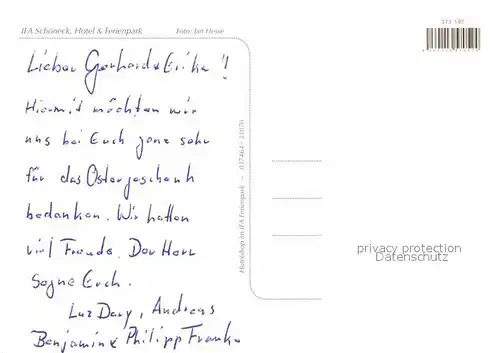 IFA Schöneck, Hotel & Ferienpark
Foto: Jan Hesse
373 197
Lieber Gerhard & Erika!
Hiermit möchten wir
uns bei Euch ganz sehr
für das Ostergeschenk
bedanken. Wir hatten
viel Freude. Der Herr
Segne Euch.
Luz Dary, Andreas
Benjamin & Philipp Franke
Hotelshop im IFA Ferienpark
privacy protection
Datenschutz